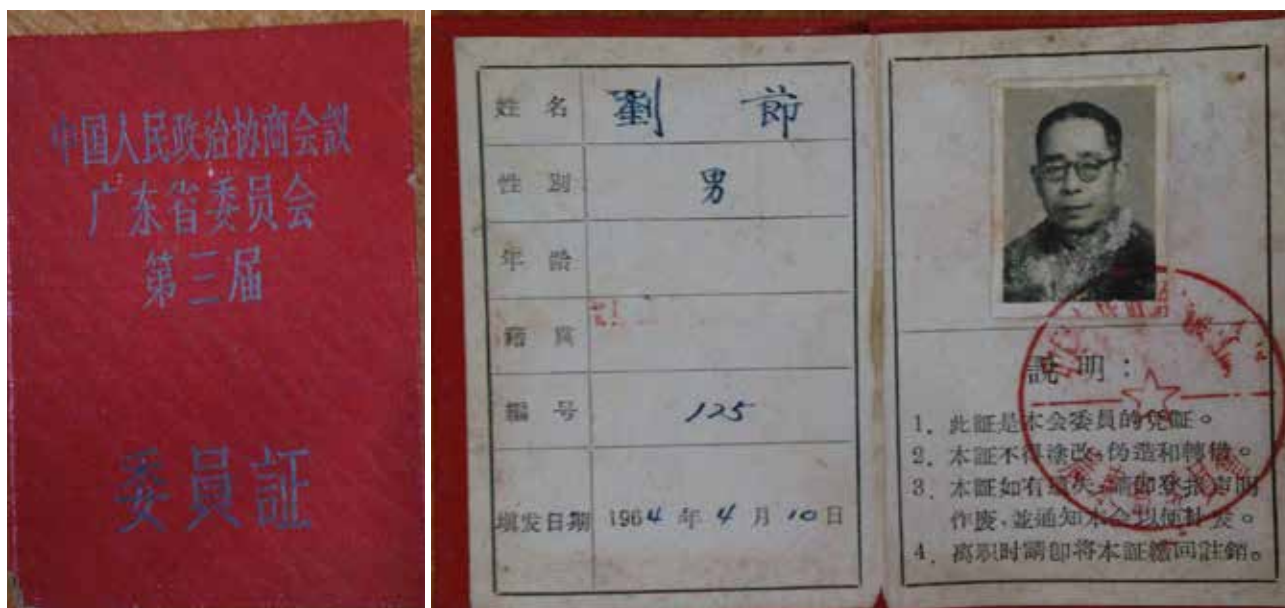 中国人民政治协商会議
广东省委员会
第三届
委員証
姓名 劉節
性別 男
年齡
籍貫
編号 125
填发日期 1964年4月10日
説明：
1. 此証是本会委員的凭証。
2. 本証不得塗改、伪造和轉借。
3. 本証如有遺失，請即登报声明
作废，並通知本会以便計发。
4. 离职时請即将本証繳回註銷。